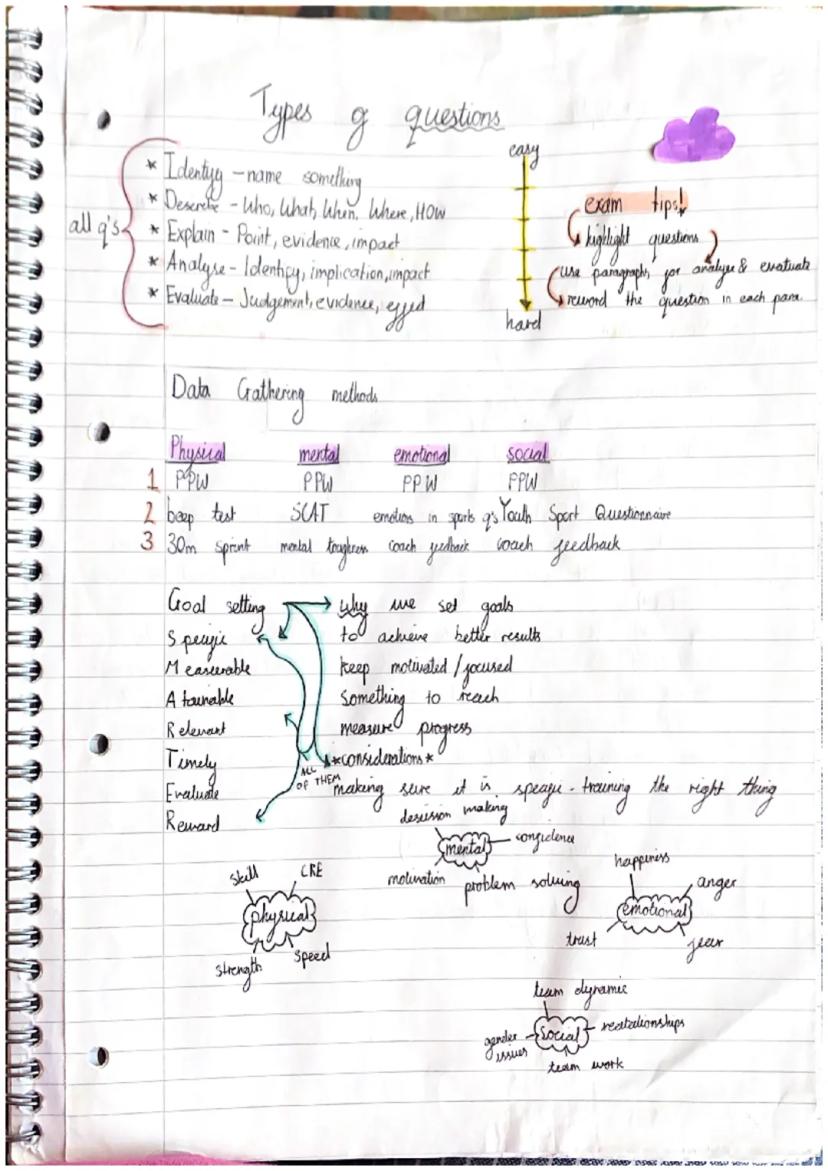 Types of questions
easy
* Identify – name something
* Describe - Who, What, When, Where, HOW
all q's
* Explain - Point, evidence, impact
* Analyse - Identify, implication, impact
* Evaluate – Judgement, evidence, effect
hard
exam tips!
highlight questions
use paragraphs for analyse & evaluate
reword the question in each para.
Data Gathering methods
Physical mental emotional social
1 PPW PPW PPW PPW
2 beep test SCAT emotions in sports q's Youth Sport Questionnaire
3 30m sprint mental toughness coach feedback coach feedback
Goal setting → why we set goals
Specific to achieve better results
Measurable keep motivated / focused
Attainable something to reach
Relevant measure progress
Timely *considerations*
ALL OF THEM
Evaluate making sure it is specific - training the right thing
Reward
decision making
mental
confidence
motivation
problem solving
skill
CRE
physical
strength
speed
happiness
anger
emotional
trust
fear
team dynamic
social
realationships
gender issues
team work